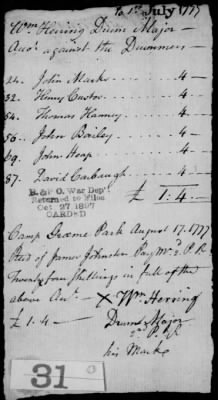 to 1st July 1777
Wm Herring Drum Major
Acct against the Drummers
24. John Marks . . . . 4 —
32. Henry Custor . . 4 —
54. Thomas Hanney . . 4 —
56. John Bailey . . . 4 —
69. John Hoop . . . . 4 —
87. David Carbaugh . . 4 —
£ 1 : 4 . —
R. & P. O. War Dep't
Returned to Files
Oct 27 1897
CARDED
Camp Græme Park August 17. 1777
Recd of James Johnston Pay Mr 2d P. R
Twenty four Shillings in full of the
above Acct —
£ 1: 4 —
X Wm Herring
Drum Major
2d P. R
his Mark
31